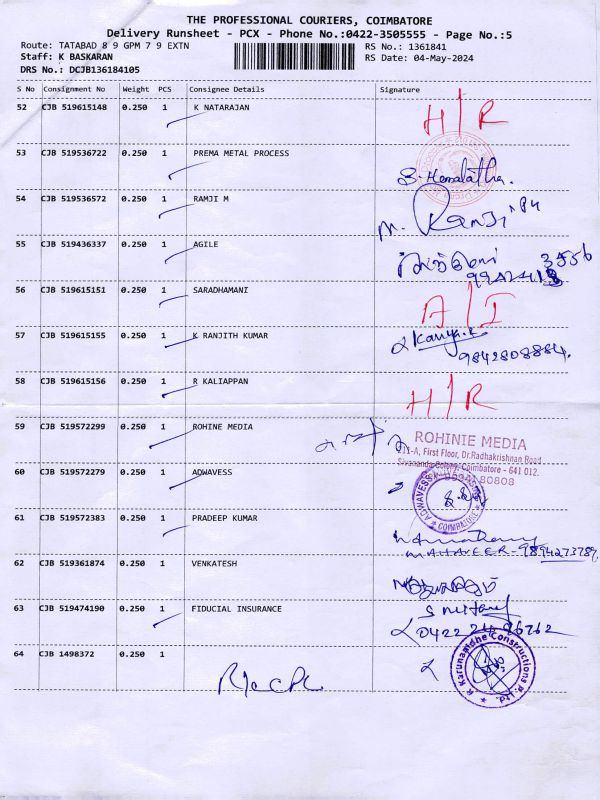 THE PROFESSIONAL COURIERS, COIMBATORE
Delivery Runsheet - PCX - Phone No.:0422-3505555 - Page No.:5
Route: TATABAD 8 9 GPM 7 9 EXTN RS No.: 1361841
Staff: K BASKARAN RS Date: 04-May-2024
DRS No.: DCJB136184105
S No Consignment No Weight PCS Consignee Details Signature
52 CJB 519615148 0.250 1 K NATARAJAN H/R
53 CJB 519536722 0.250 1 PREMA METAL PROCESS S. Hemalatha.
54 CJB 519536572 0.250 1 RAMJI M M. Ramji
55 CJB 519436337 0.250 1 AGILE
56 CJB 519615151 0.250 1 SARADHAMANI A/I
57 CJB 519615155 0.250 1 K RANJITH KUMAR Kanya.K
9842808884.
58 CJB 519615156 0.250 1 R KALIAPPAN H/R
59 CJB 519572299 0.250 1 ROHINE MEDIA
ROHINIE MEDIA
211-A, First Floor, Dr.Radhakrishnan Road
Sivananda Colony, Coimbatore - 641 012.
60 CJB 519572279 0.250 1 ADWAVESS
ADWAVESS * COIMBATORE *
61 CJB 519572383 0.250 1 PRADEEP KUMAR
MAHAVEER - 9894273789
62 CJB 519361874 0.250 1 VENKATESH
63 CJB 519474190 0.250 1 FIDUCIAL INSURANCE
64 CJB 1498372 0.250 1
R Karunanidhe Constructions P. Ltd.